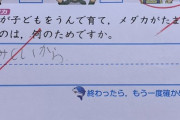 が子どもをうんで育て,メダカがたま
のは,何のためですか。
終わったら、もう一度確か